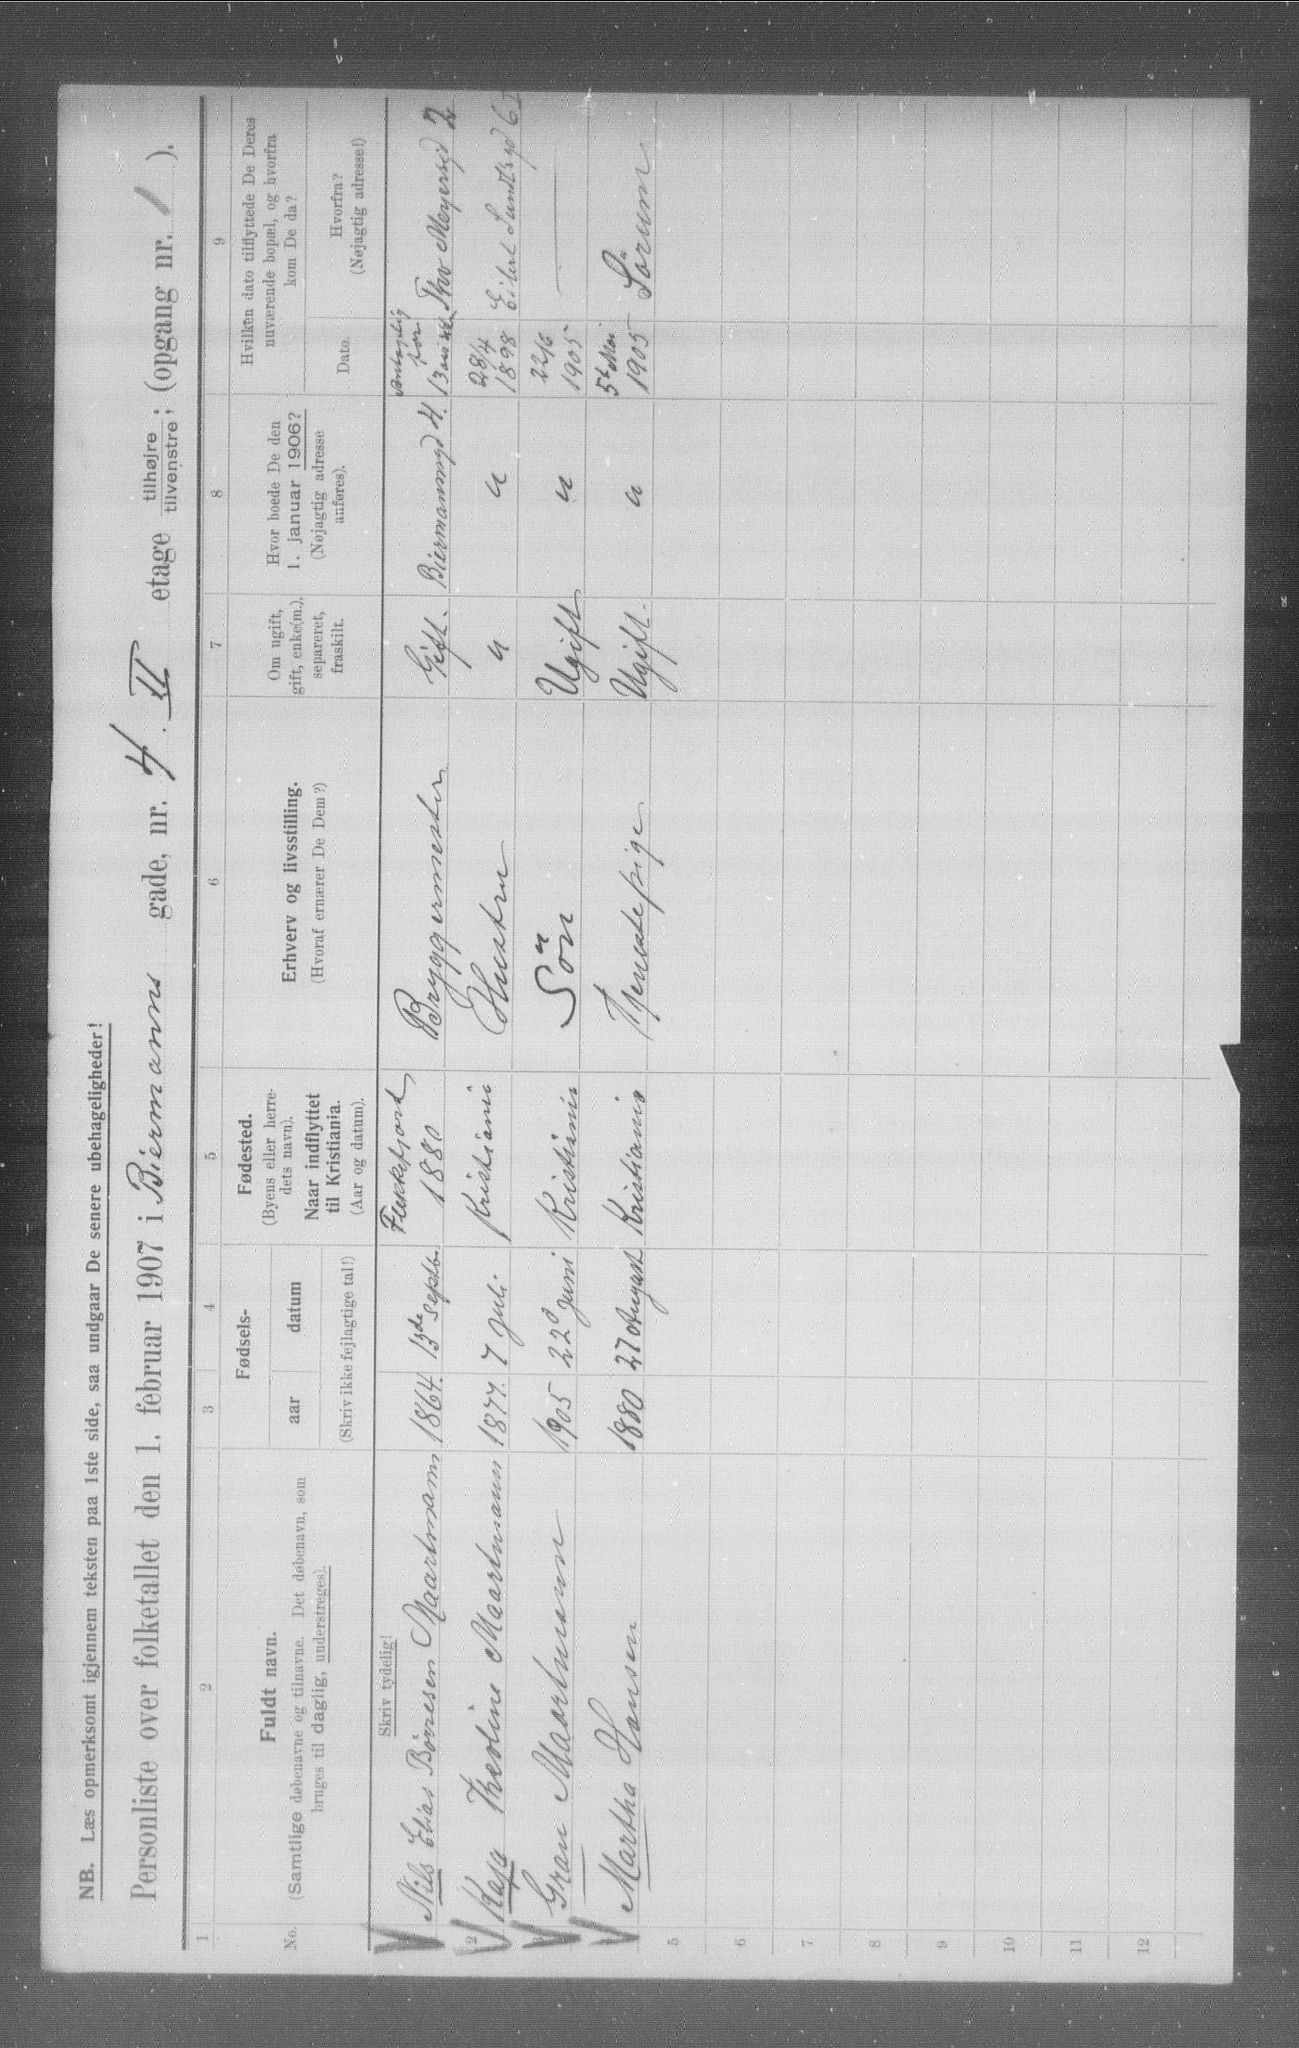 NB. Læs opmerksomt igjennem teksten paa 1ste side, saa undgaar De senere ubehageligheder!
Personliste over folketallet den 1. februar 1907 i Biermanns gade, nr. 4. II etage tilhøjre / tilvenstre; (opgang nr. 1 ).
1 2 3 4 5 6 7 8 9
No.
Fuldt navn.
(Samtlige døbenavne og tilnavne. Det døbenavn, som
bruges til daglig, understreges).
Fødsels-
aar datum
(Skriv ikke fejlagtige tal!)
Fødested.
(Byens eller herre-
dets navn).
Naar indflyttet
til Kristiania.
(Aar og datum).
Erhverv og livsstilling.
(Hvoraf ernærer De Dem?)
Om ugift,
gift, enke(m.),
separeret,
fraskilt.
Hvor boede De den
1. januar 1906?
(Nøjagtig adresse
anføres).
Hvilken dato tilflyttede De Deres
nuværende bopæl, og hvorfra
kom De da?
Dato.
Hvorfra?
(Nøjagtig adresse!)
Skriv tydelig!
Nils Elias Börresen Maartmann 1864. 13de Septb. Flekkefjord 1880 Bryggermester Gift. Biermannsgd 4. Antagelig for 13 aar Thv Meyersgd 2
2 Kaja Theoline Maartmann 1877. 7 Juli Kristiania Hustru " " 28/4 1898 Eilert Sundtsgd 6
3 Gran Maartmann 1905 22d Juni Kristiania Sön Ugift " 22/6 1905 —
Martha Hansen 1880 27 August Kristiania Tjenestepige Ugift. " 5t Mai 1905 Sörum
5
6
7
8
9
10
11
12